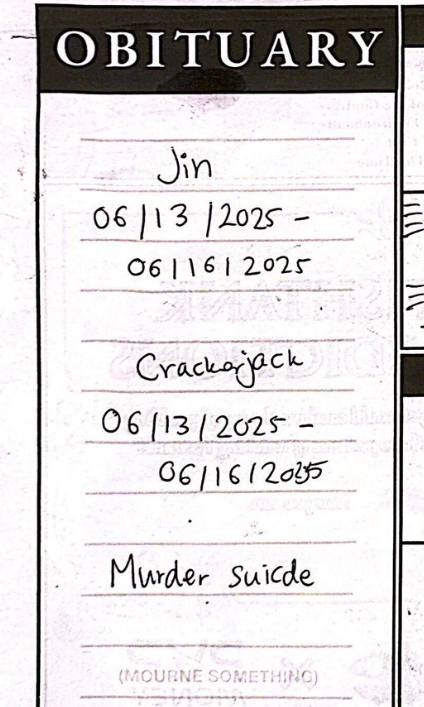 OBITUARY
Jin
06/13/2025 -
06/16/2025
Crackerjack
06/13/2025 -
06/16/2025
Murder suicde
(MOURNE SOMETHING)